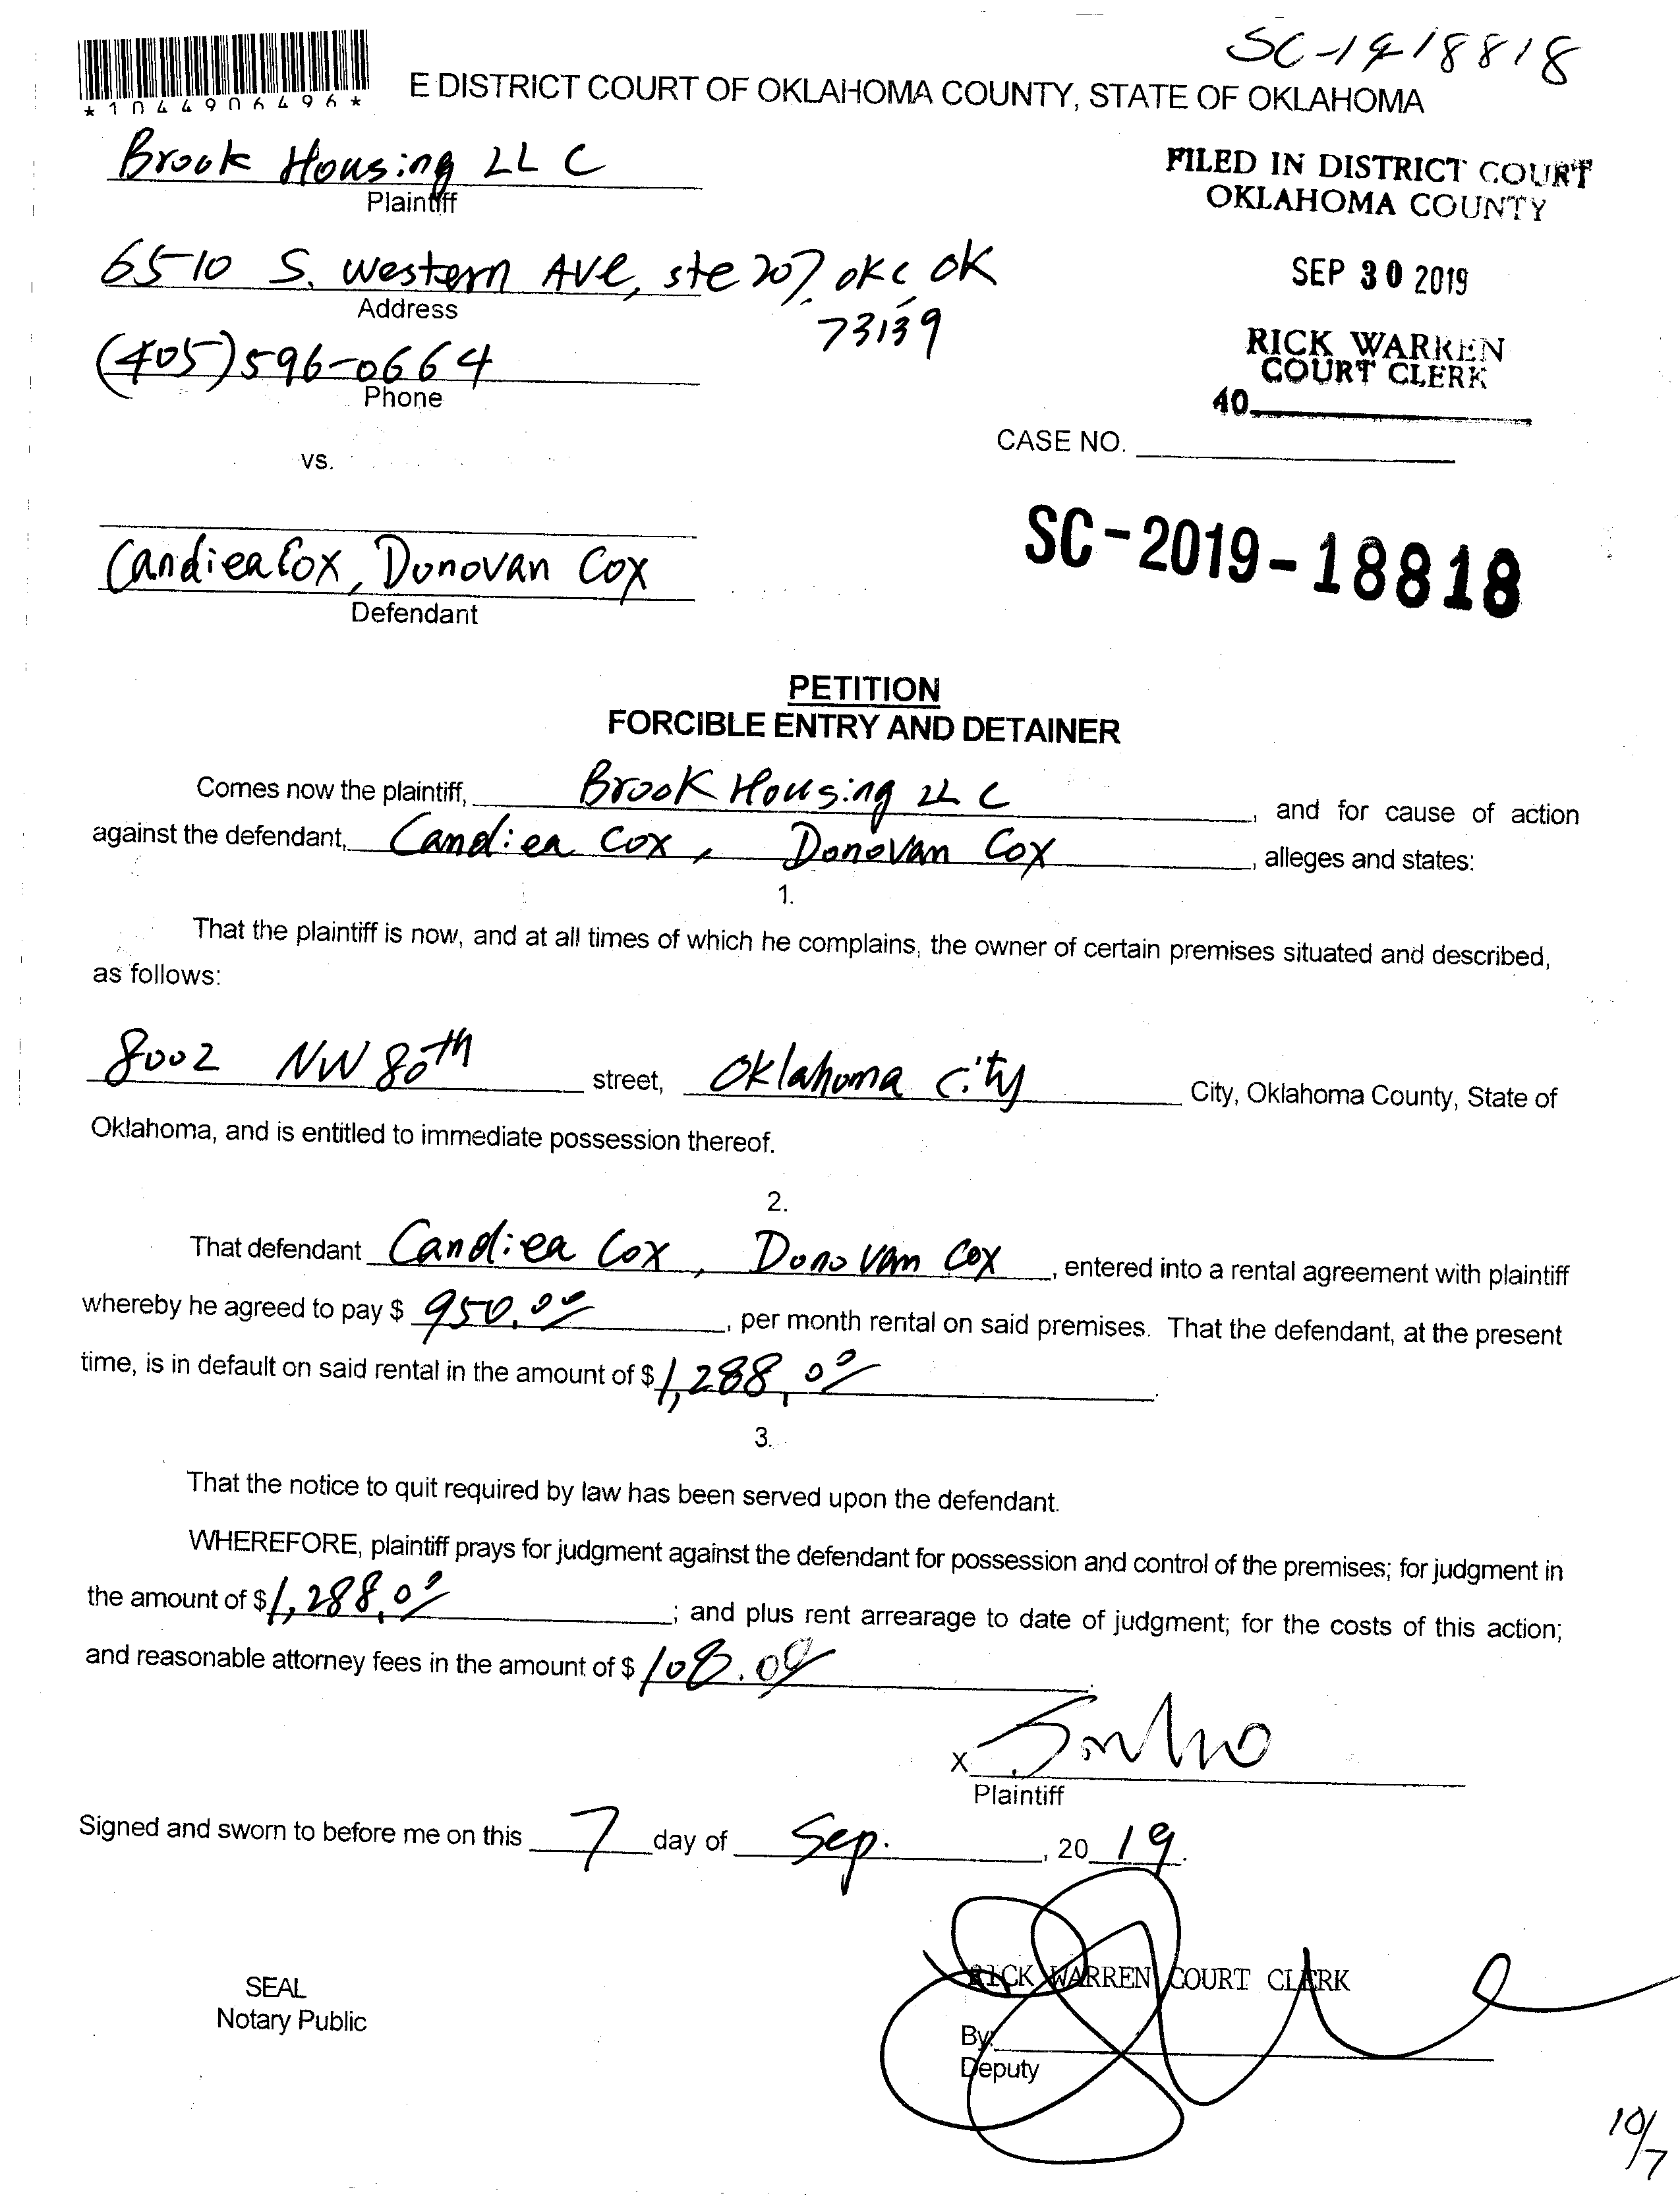 SC-19-18818
*1044906496*
E DISTRICT COURT OF OKLAHOMA COUNTY, STATE OF OKLAHOMA
Brook Housing LLC
Plaintiff
FILED IN DISTRICT COURT
OKLAHOMA COUNTY
6510 S. Western AVe, ste 207, OKC, OK
73139
Address
SEP 30 2019
(405) 596-0664
Phone
RICK WARREN
COURT CLERK
40
CASE NO.
vs.
SC-2019-18818
Candiea Cox, Donovan Cox
Defendant
PETITION
FORCIBLE ENTRY AND DETAINER
Comes now the plaintiff, Brook Housing LLC, and for cause of action
against the defendant, Candiea Cox, Donovan Cox, alleges and states:
1.
That the plaintiff is now, and at all times of which he complains, the owner of certain premises situated and described,
as follows:
8002 NW 80th street, Oklahoma City City, Oklahoma County, State of
Oklahoma, and is entitled to immediate possession thereof.
2.
That defendant Candiea Cox, Donovan Cox, entered into a rental agreement with plaintiff
whereby he agreed to pay $ 950.00, per month rental on said premises. That the defendant, at the present
time, is in default on said rental in the amount of $ 1,288.00.
3.
That the notice to quit required by law has been served upon the defendant.
WHEREFORE, plaintiff prays for judgment against the defendant for possession and control of the premises; for judgment in
the amount of $ 1,288.00; and plus rent arrearage to date of judgment; for the costs of this action;
and reasonable attorney fees in the amount of $ 108.00.
X
Plaintiff
Signed and sworn to before me on this 7 day of Sep., 20 19.
RICK WARREN COURT CLERK
SEAL
Notary Public
By:
Deputy
10/7